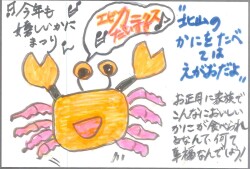 今年も
嬉しいかに
まつり
"北山の
かにをたべ
ては
えがおだよ
お正月に家族で
こんなにおいしい
かにが食べられ
るなんて、何て
幸福なんでしょう!